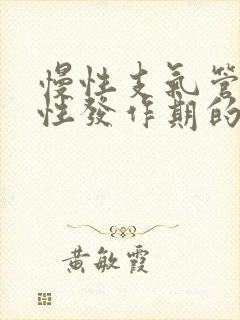 慢性支氣管
性發作期的
黃敏霞